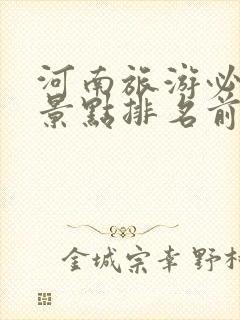 河南旅游必
景點排名前
金城宗幸野村